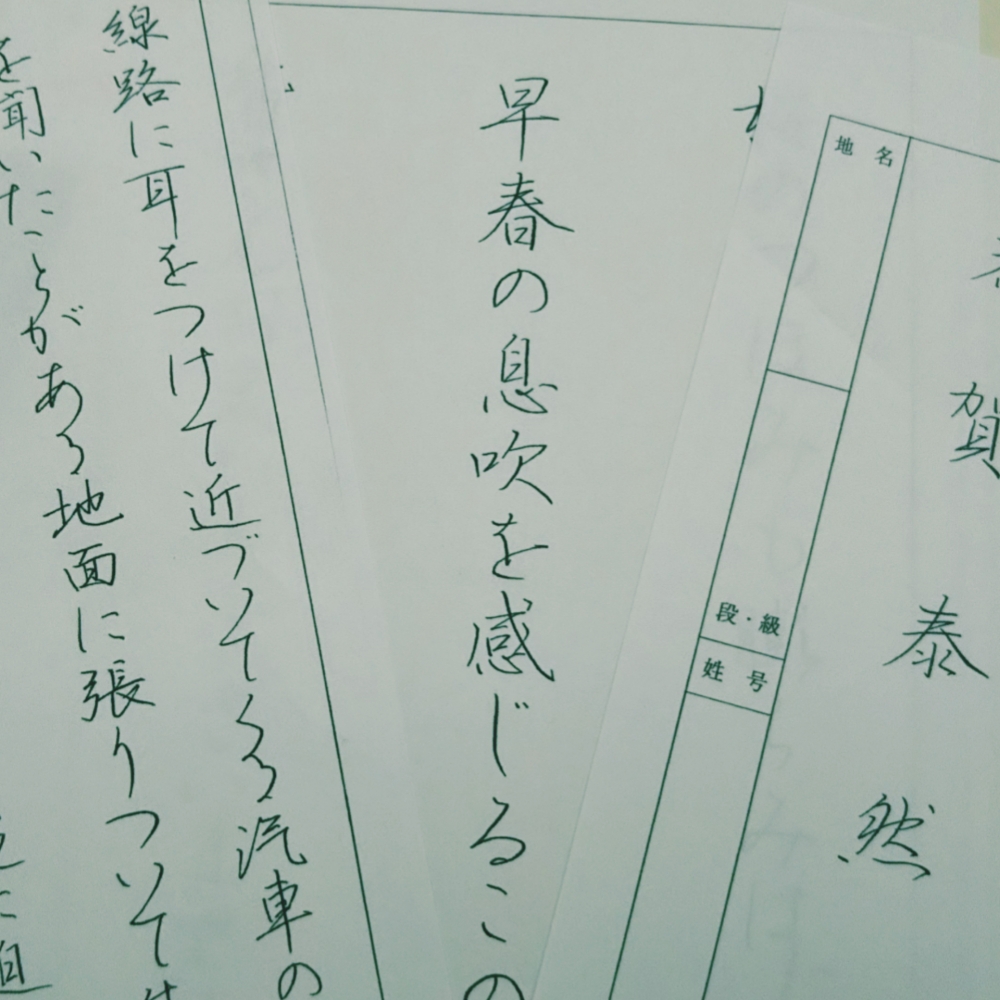 賀
泰然
地名
段・級
姓号
早春の息吹を感じるこの
線路に耳をつけて近づいてくる汽車の
を聞いたことがある地面に張りついて